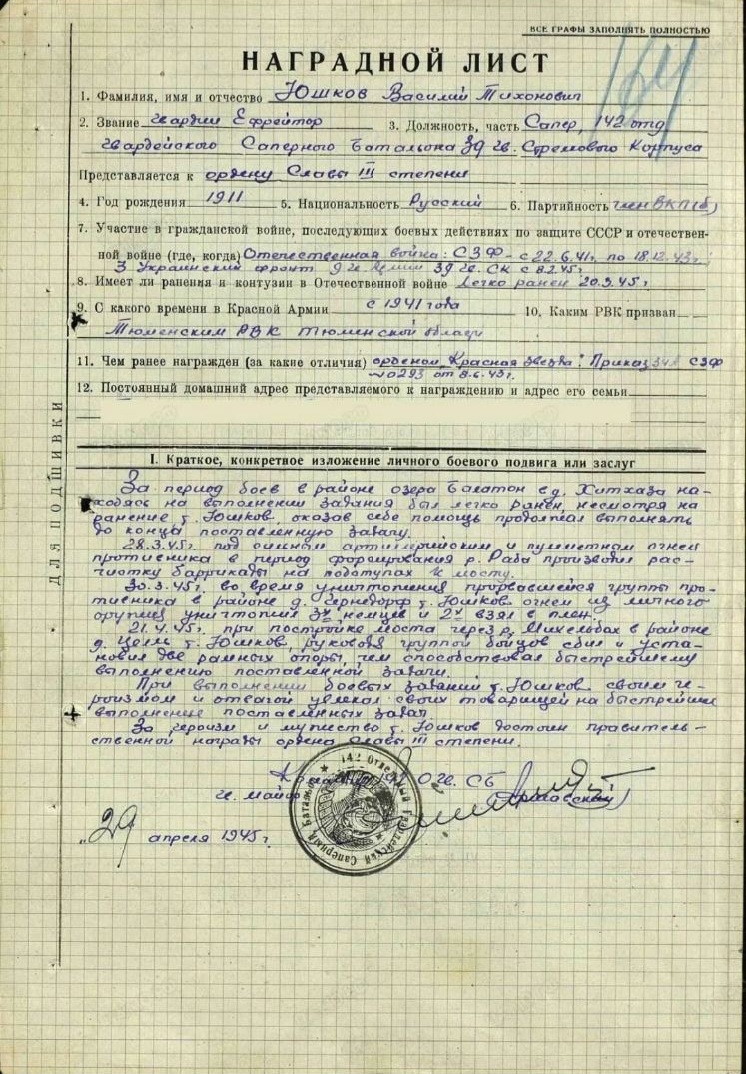 ВСЕ ГРАФЫ ЗАПОЛНЯТЬ ПОЛНОСТЬЮ
164
НАГРАДНОЙ ЛИСТ
1. Фамилия, имя и отчество Юшков Василий Тихонович
2. Звание гвардии Ефрейтор 3. Должность, часть Сапер, 142 отд
гвардейского Саперного Батальона 39 гв. Стрелкового Корпуса
Представляется к ордену Славы III степени
4. Год рождения 1911 5. Национальность Русский 6. Партийность член ВКП(б)
7. Участие в гражданской войне, последующих боевых действиях по защите СССР и отечествен-
ной войне (где, когда) Отечественная война: СЗФ - с 22.6.41г. по 18.12.43г;
3 Украинский фронт 9 гв. Армии 39 гв. СК с 8.2.45г
8. Имеет ли ранения и контузии в Отечественной войне Легко ранен 20.3.45г
9. С какого времени в Красной Армии с 1941 года 10. Каким РВК призван
Тюменским РВК Тюменской области
11. Чем ранее награжден (за какие отличия) орденом "Красная звезда". Приказ СЗФ
№0293 от 8.6.43г.
12. Постоянный домашний адрес представляемого к награждению и адрес его семьи
I. Краткое, конкретное изложение личного боевого подвига или заслуг
За период боев в районе озера Балатон в д. Хитхаза на-
ходясь на выполнении задания был легко ранен, несмотря на
ранение т. Юшков, оказав себе помощь продолжал выполнять
до конца поставленную задачу.
28.3.45г. под сильным артиллерийским и пулеметным огнем
противника в период форсирования р. Раба производил рас-
чистку баррикады на подступах к мосту.
30.3.45г. во время уничтожения прорвавшейся группы про-
тивника в районе д. Бернедорф т. Юшков огнем из личного
оружия уничтожил 3х немцев и 2х взял в плен.
21.4.45г. при постройке моста через р. Михельбах в районе
д. Целль т. Юшков, руководя группой бойцов сбил и уста-
новил две рамных опоры, чем способствовал быстрейшему
выполнению поставленной задачи.
При выполнении боевых заданий т. Юшков своим ге-
роизмом и отвагой увлекал своих товарищей на быстрейшее
выполнение поставленных задач.
За героизм и мужество т. Юшков достоин правитель-
ственной награды ордена Славы III степени.
Командир 142 О гв. СБ
гв. майор
"29 апреля 1945г.
142 Отдельный Гвардейский Саперный Батальон
ДЛЯ ПОДШИВКИ